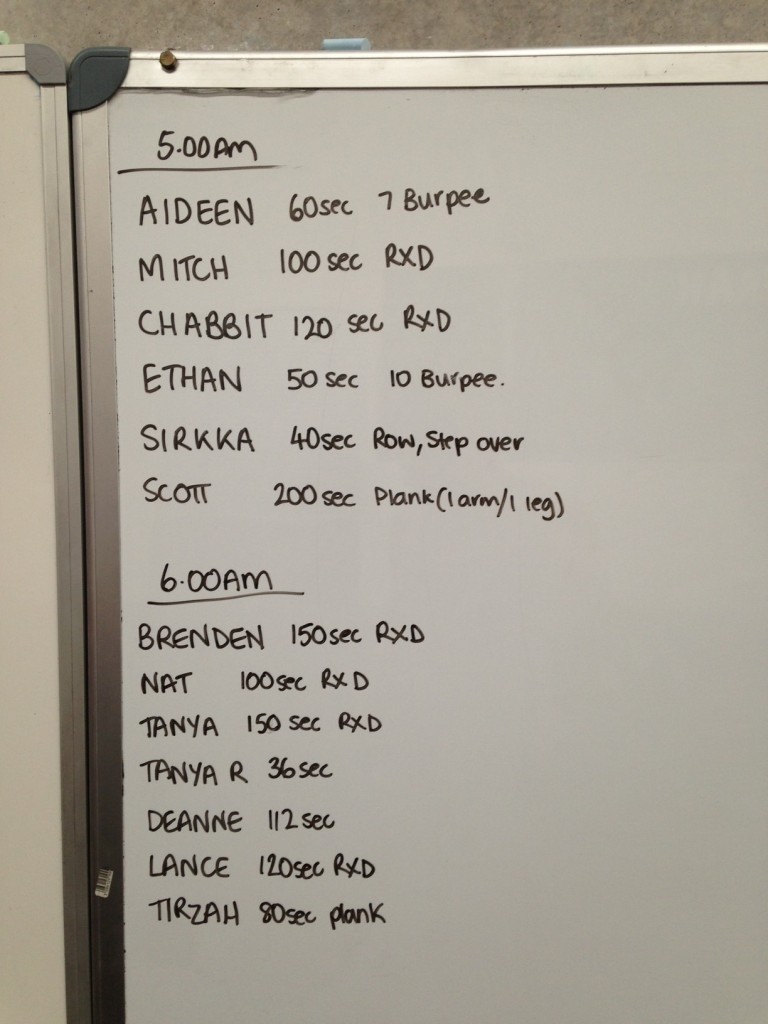 5.00AM
AIDEEN 60sec 7 Burpee
MITCH 100 sec RXD
CHABBIT 120 sec RXD
ETHAN 50 sec 10 Burpee.
SIRKKA 40sec Row, Step over
SCOTT 200 sec Plank (1 arm/1 leg)
6.00AM
BRENDEN 150sec RXD
NAT 100sec RXD
TANYA 150 sec RXD
TANYA R 36sec
DEANNE 112 sec
LANCE 120sec RXD
TIRZAH 80sec plank